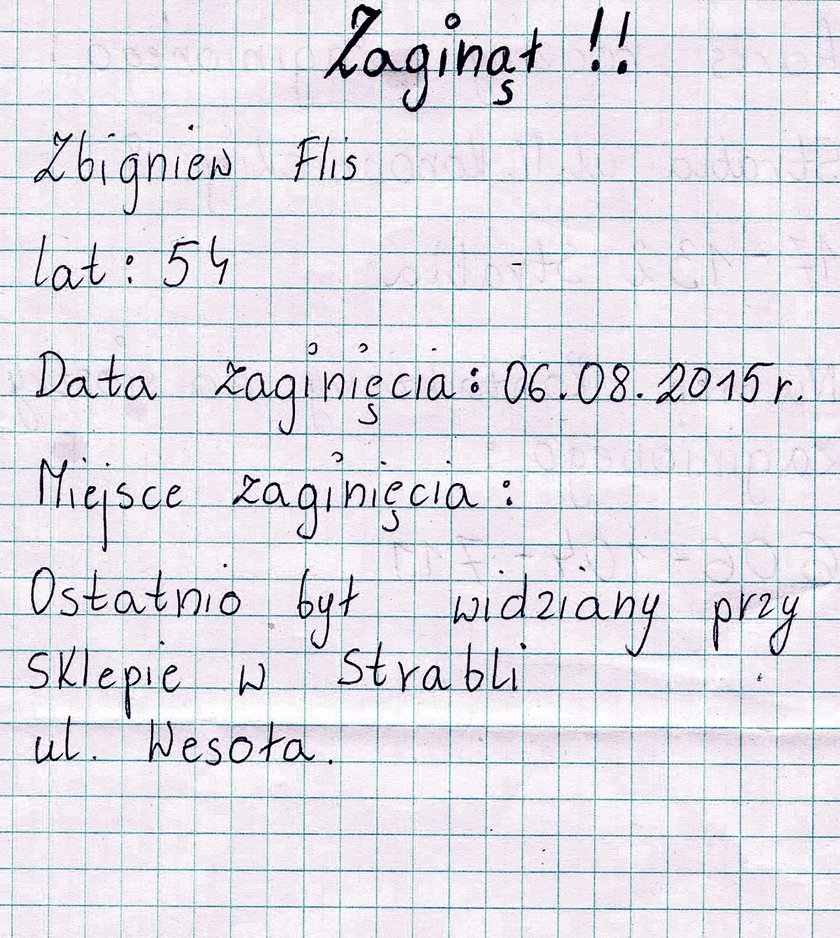 Zaginął !!
Zbigniew Flis
lat: 54
Data zaginięcia: 06.08.2015r.
Miejsce zaginięcia:
Ostatnio był widziany przy
sklepie w Strabli
ul. Wesoła.